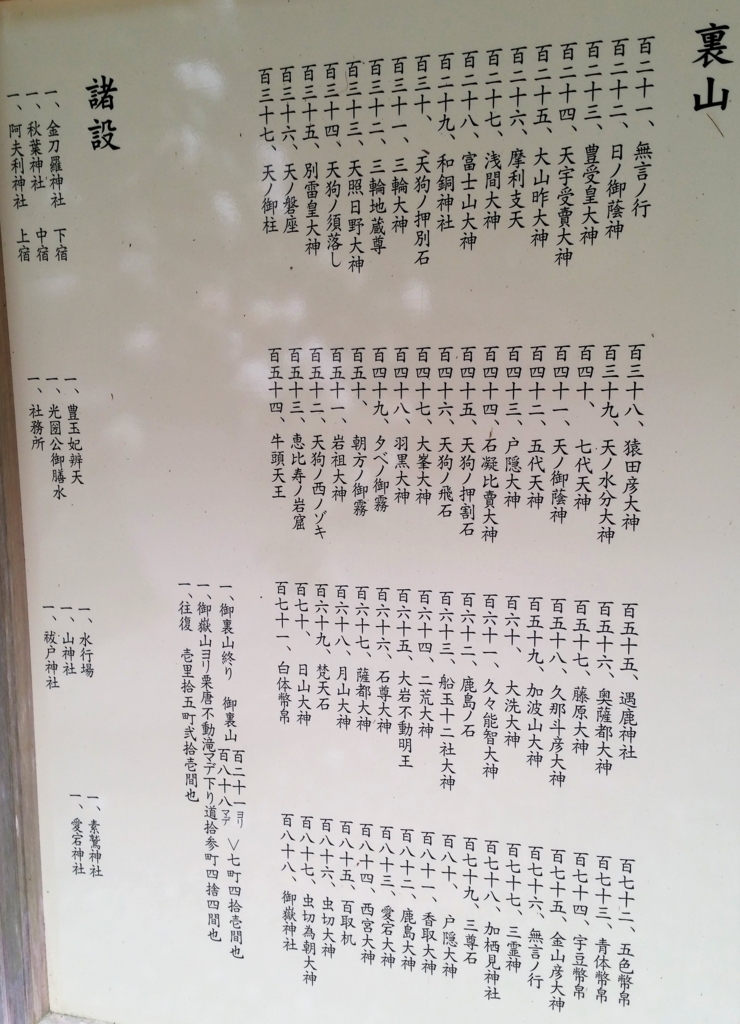 裏山
百二十一、無言ノ行
百二十二、日ノ御蔭神
百二十三、豊受皇大神
百二十四、天宇受賣大神
百二十五、大山咋大神
百二十六、摩利支天
百二十七、浅間大神
百二十八、富士山大神
百二十九、和銅神社
百三十、天狗ノ押別石
百三十一、三輪大神
百三十二、三輪地蔵尊
百三十三、天照日野大神
百三十四、天狗ノ須落し
百三十五、別雷皇大神
百三十六、天ノ磐座
百三十七、天ノ御柱
百三十八、猿田彦大神
百三十九、天ノ水分大神
百四十、七代天神
百四十一、天ノ御蔭神
百四十二、五代天神
百四十三、戸隠大神
百四十四、石凝比賣大神
百四十五、天狗ノ押割石
百四十六、天狗ノ飛石
百四十七、大峯大神
百四十八、羽黒大神
百四十九、夕べノ御霧
百五十、朝方ノ御霧
百五十一、岩祖大神
百五十二、天狗ノ西ノゾキ
百五十三、恵比寿ノ岩窟
百五十四、牛頭天王
百五十五、遇鹿神社
百五十六、奥薩都大神
百五十七、藤原大神
百五十八、久那斗彦大神
百五十九、加波山大神
百六十、大洗大神
百六十一、久々能智大神
百六十二、鹿島ノ石
百六十三、船玉十二社大神
百六十四、二荒大神
百六十五、大岩不動明王
百六十六、石尊大神
百六十七、薩都大神
百六十八、月山大神
百六十九、梵天石
百七十、日山大神
百七十一、白体幣帛
百七十二、五色幣帛
百七十三、青体幣帛
百七十四、宇豆幣帛
百七十五、金山彦大神
百七十六、無言ノ行
百七十七、三霊神
百七十八、加栖見神社
百七十九、三尊石
百八十、戸隠大神
百八十一、香取大神
百八十二、鹿島大神
百八十三、愛宕大神
百八十四、西宮大神
百八十五、百取机
百八十六、虫切大神
百八十七、虫切為朝大神
百八十八、御嶽神社
一、御裏山終り　御裏山　百二十一ヨリ百八十八マデ＞七町四拾壱間也
一、御嶽山ヨリ粟唐不動滝マデ下り道拾参町四捨四間也
一、往復　壱里拾五町弐拾壱間也
諸設
一、金刀羅神社　下宿
一、秋葉神社　中宿
一、阿夫利神社　上宿
一、豊玉妃辨天
一、光圀公御膳水
一、社務所
一、水行場
一、山神社
一、祓戸神社
一、素鵞神社
一、愛宕神社